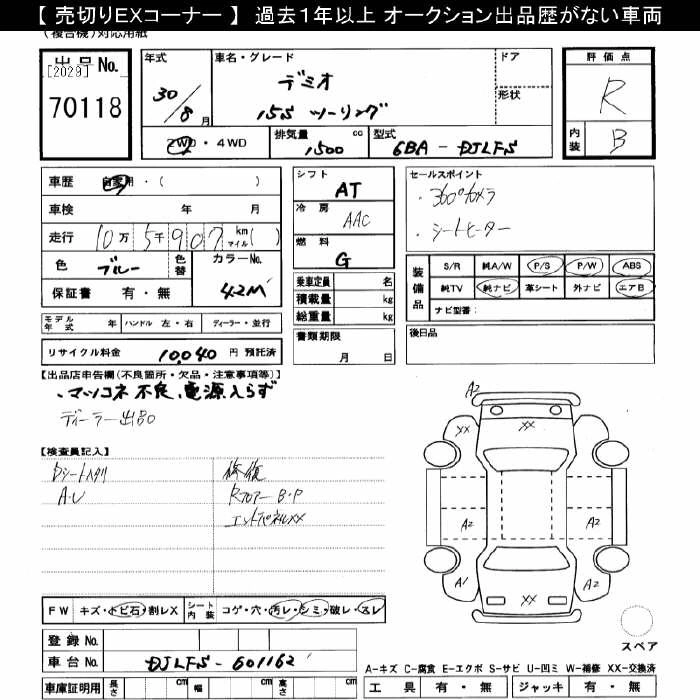 【 売切りEXコーナー 】 過去1年以上 オークション出品歴がない車両
(複合機)対応用紙
出品 No.
[2029]
70118
年式
30/8月
車名・グレード
デミオ
15S ツーリング
ドア
形状
評価点
R
内装
B
2WD・4WD
排気量 cc
1500
型式
6BA - DJLFS
車歴 自家用・( )
車検 年 月
走行 10万5千907 km マイル( )
色 ブルー 色替 カラーNo.
42M
保証書 有・無
シフト
AT
冷房
AAC
燃料
G
セールスポイント
・360°カメラ
・シートヒーター
装備品
S/R 純A/W P/S P/W ABS
純TV 純ナビ 革シート 外ナビ エアB
ナビ型番:
乗車定員 名
積載量 kg
総重量 kg
モデル年式 年 ハンドル 左・右 ディーラー・並行
書類期限
月 日
後日品
リサイクル料金 10,040 円 預託済
【出品店申告欄(不良箇所・欠品・注意事項等)】
・マツコネ不良、電源入らず
ディーラー出品
【検査員記入】
Dシートヘタリ
A・U
修復
RフロアーB・P
エンドパネルXX
A2
XX XX
A2 A2
A1 XX A2
FW キズ・トビ石・割レX シート内装 コゲ・穴・汚レ・シミ・破レ・スレ
登録 No.
車台 No. DJLFS-601162
車庫証明用 長さ cm 幅 cm 高さ cm
スペア
A-キズ C-腐食 E-エクボ S-サビ U-凹ミ W-補修 XX-交換済
工具 有・無 ジャッキ 有・無